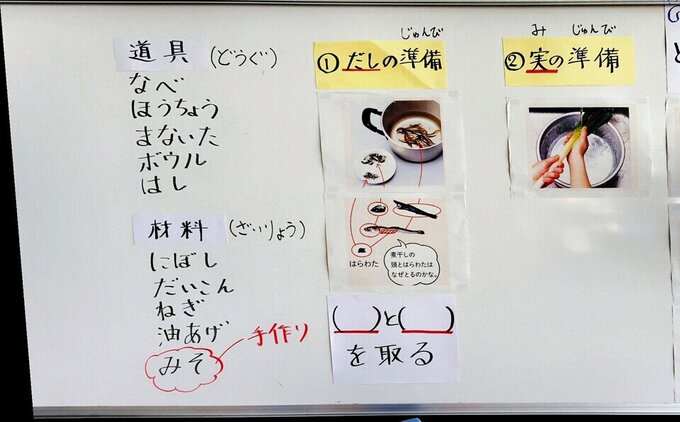 道具 (どうぐ)
なべ
ほうちょう
まないた
ボウル
はし
材料 (ざいりょう)
にぼし
だいこん
ねぎ
油あげ
みそ
手作り
じゅんび
①だしの準備
はらわた
煮干しの
頭とはらわたは
なぜとるのかな。
( )と( )
を取る
み じゅんび
②実の準備